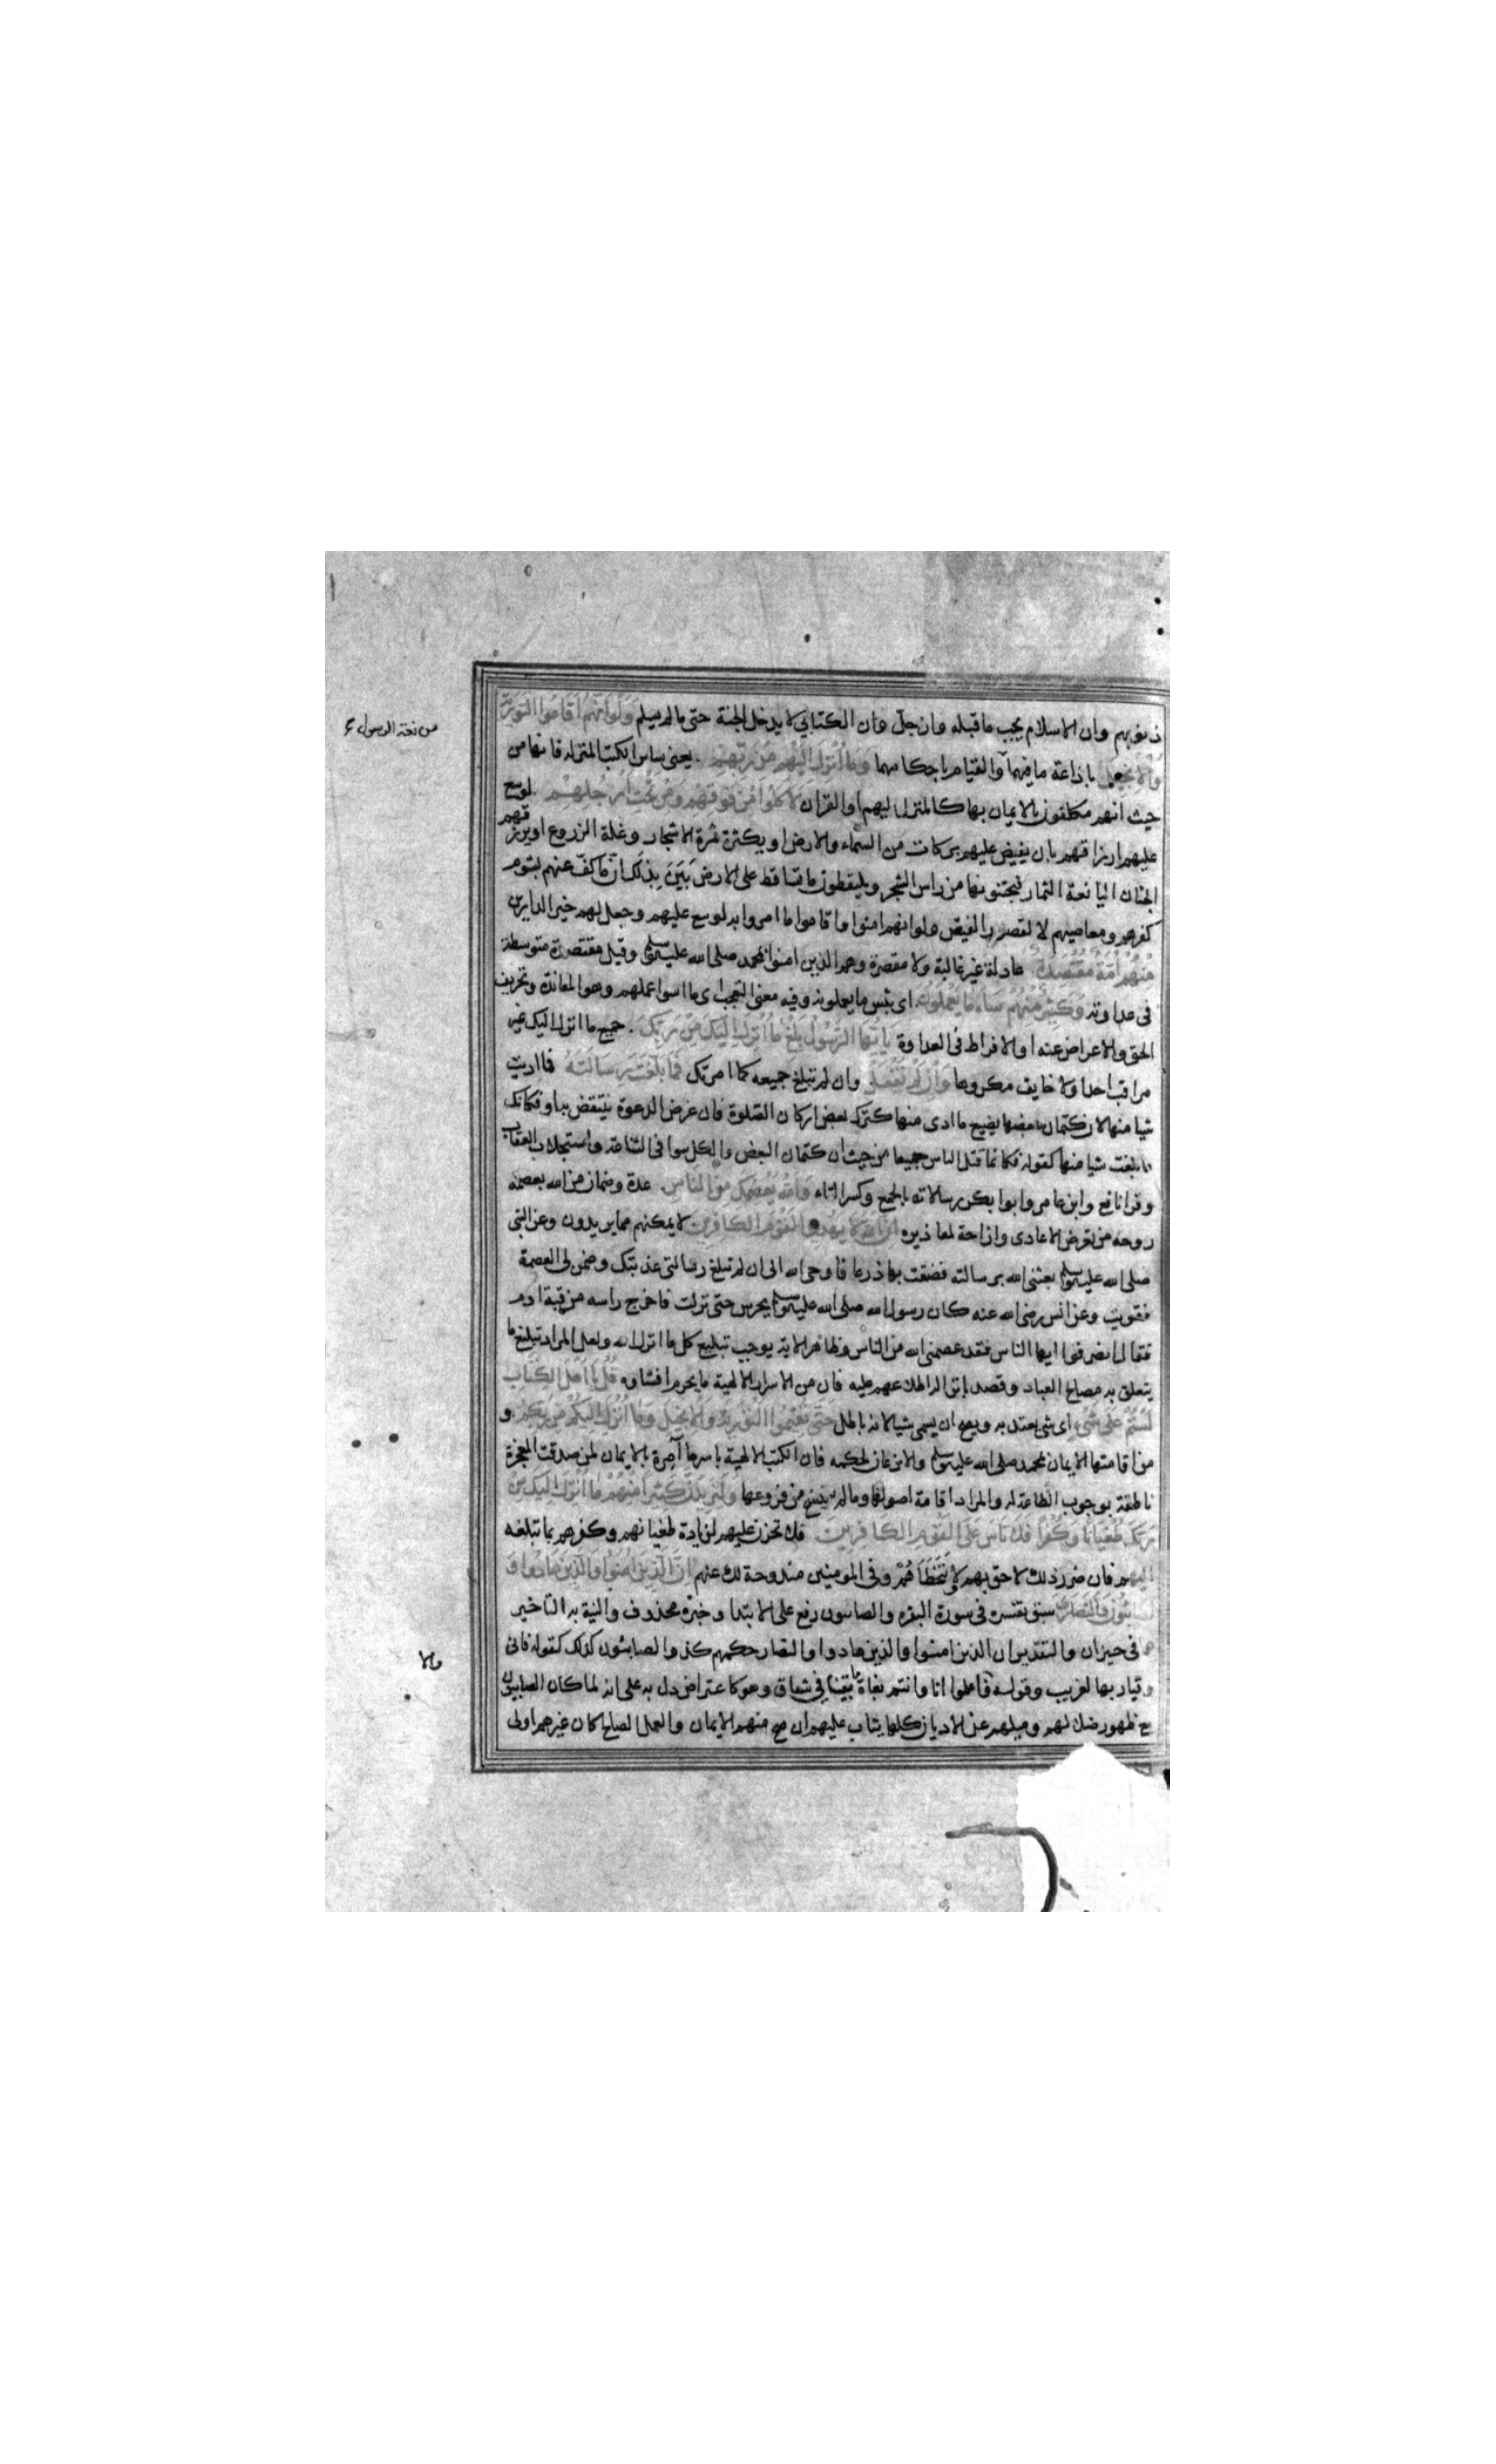 ذنوبهم وان الاسلام يجب ما قبله وان جل وان الكتابي لا يدخل الجنة حتى ما لم يسلم وَلَوْ اَنَّهُمْ اَقَامُوا التَّوْرٰيةَ
وَالْاِنْجِيلَ باذاعة ما فيهما والقيام باحكامهما وَمَا اُنْزِلَ اِلَيْهِمْ مِنْ رَبِّهِمْ يعني سائر الكتب المنزله فانها من
حيث انهم مكلفون بالايمان بها كالمنزل اليهم او القران لَاَكَلُوا مِنْ فَوْقِهِمْ وَمِنْ تَحْتِ اَرْجُلِهِمْ لوسع
عليهم ارزاقهم بان يفيض عليهم بركات من السماء والارض او يكثرة ثمرة الاشجار وغلة الزروع او يرزقهم
الجنان اليانعة الثمار فيجتنونها من راس الشجر ويلتقطون ما تساقط على الارض بَيَّنَ بذلك ان ما كف عنهم بشوم
كفرهم ومعاصيهم لا لقصور الفيض ولو انهم امنوا واقاموا ما امروا به لوسع عليهم وجعل لهم خير الدارين
مِنْهُمْ اُمَّةٌ مُقْتَصِدَةٌ عادلة غير غالية ولا مقصرة وهم الذين امنوا بمحمد صلى الله عليه وسلم وقيل مقتصدة متوسطة
في عداوته وَكَثِيرٌ مِنْهُمْ سَاءَ مَا يَعْمَلُونَ اي بئس ما يعملونه وفيه معنى التعجب اي ما اسوا عملهم وهو المعاندة وتحريف
الحق والاعراض عنه او الافراط في العداوة يَا اَيُّهَا الرَّسُولُ بَلِّغْ مَا اُنْزِلَ اِلَيْكَ مِنْ رَبِّكَ جميع ما انزل اليك غير
مراقب احدا ولا خايف مكروها وَاِنْ لَمْ تَفْعَلْ وان لم تبلغ جميعه كما امرتك فَمَا بَلَّغْتَ رِسَالَتَهُ فما اديت
شيا منها لان كتمان بعضها يضيع ما ادى منها كترك بعض اركان الصلوة فان غرض الدعوة ينتقض به او فكانك
ما بلغت شيا منها كقوله فكانما قتل الناس جميعا من حيث ان كتمان البعض والكل سوا في الشناعة واستجلاب العقاب
وقرا نافع وابن عامر وابوا بكر رسالاته بالجمع وكسر التاء وَاللّٰهُ يَعْصِمُكَ مِنَ النَّاسِ عدة وضمان من الله بعصمة
روحه من تعرض الاعادي وازاحة لمعاذيره اِنَّ اللّٰهَ لَا يَهْدِي الْقَوْمَ الْكَافِرِينَ لا يمكنهم مما يريدون وعن النبي
صلى الله عليه وسلم بعثني الله برسالته فضقت بها ذرعا فاوحى الله الى ان لم تبلغ رسالتي عذبتك وضمن لي العصمة
فقويت وعن انس رضي الله عنه كان رسول الله صلى الله عليه وسلم يحرس حتى نزلت فاخرج راسه من قبة ادم
فقال انصرفوا ايها الناس فقد عصمني الله من الناس وظاهر الاية يوجب تبليغ كل ما انزل الله ولعل المراد تبليغ ما
يتعلق به مصالح العباد وقصد بانزاله اطلاعهم عليه فان من الاسرار الالهية ما يحرم افشاوه قُلْ يَا اَهْلَ الْكِتَابِ
لَسْتُمْ عَلٰى شَيْءٍ اي شي يعتد به ويصح ان يسمى شيا لانه باطل حَتّٰى تُقِيمُوا التَّوْرٰيةَ وَالْاِنْجِيلَ وَمَا اُنْزِلَ اِلَيْكُمْ مِنْ رَبِّكُمْ و
من اقامتها الايمان بمحمد صلى الله عليه وسلم والاذعان لحكمه فان الكتب الالهية باسرها آمرة بالايمان لمن صدقت المعجزة
ناطقة بوجوب الطاعة له والمراد اقامة اصولها وما لم ينسخ من فروعها وَلَيَزِيدَنَّ كَثِيرًا مِنْهُمْ مَا اُنْزِلَ اِلَيْكَ مِنْ
رَبِّكَ طُغْيَانًا وَكُفْرًا فَلَا تَأْسَ عَلَى الْقَوْمِ الْكَافِرِينَ فلا تحزن عليهم لزيادة طغيانهم وكفرهم بما تبلغه
اليهم فان ضرر ذلك لاحق بهم لا يَتَخَطَّاهُمْ وفي المومنين مندوحة لك عنهم اِنَّ الَّذِينَ اٰمَنُوا وَالَّذِينَ هَادُوا وَ
الصَّابِئُونَ وَالنَّصَارٰى سبق تفسيره في سورة البقره والصابيون رفع على الابتدا وخبره محذوف والنية به التاخير
عما في حيز ان والتقدير ان الذين امنوا والذين هادوا والنصارى حكمهم كذا والصابئون كذلك كقوله فاني
وقيار بها لغريب وقوله فاعلموا انا وانتم بغاة ما بقينا في شقاق وهو كاعتراض دل به على انه لما كان الصابيون
مع ظهور ضلالهم وميلهم عن الاديان كلها يتاب عليهم ان صح منهم الايمان والعمل الصالح كان غيرهم اولى
والا